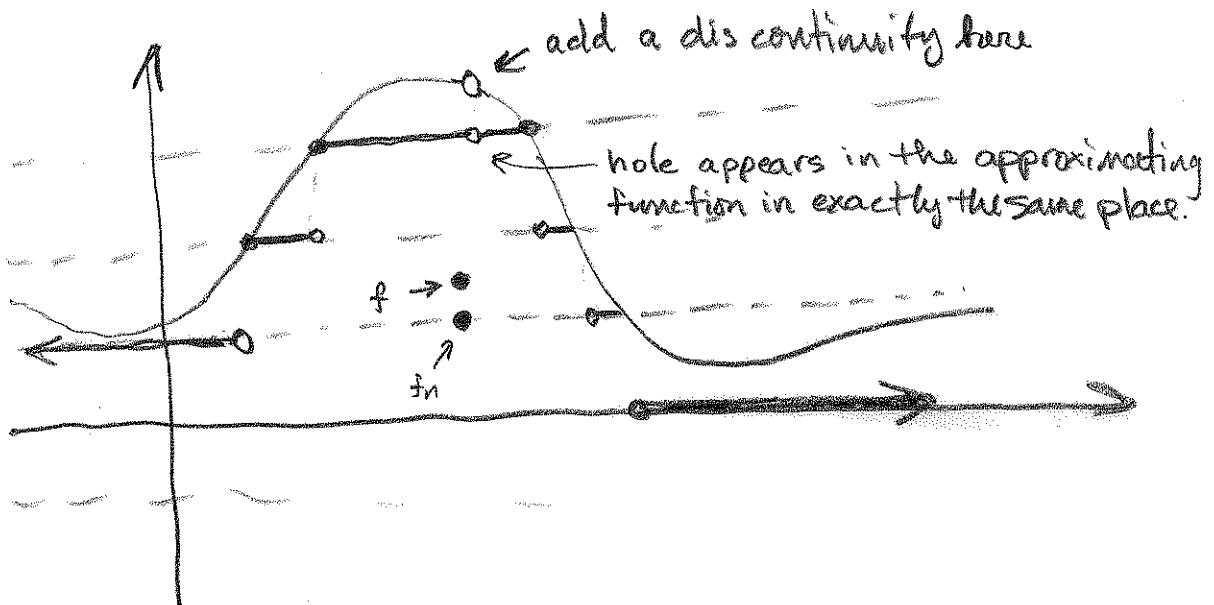 add a discontinuity here
hole appears in the approximating
function in exactly the same place.
f
fn